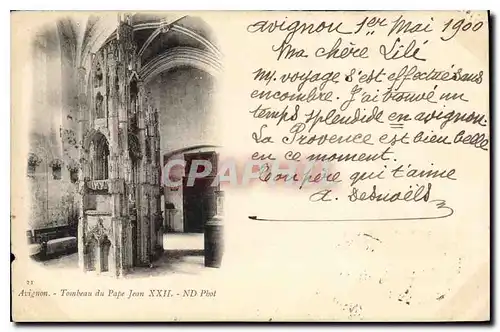 avignon 1er Mai 1900
Ma chère Lili
My voyage s'est effectué sans
encombre. J'ai trouvé un
temps splendide en avignon.
La Provence est bien belle
en ce moment.
Ton père qui t'aime
A. Desnoëls
CPARAMA
21
Avignon. - Tombeau du Pape Jean XXII. - ND Phot